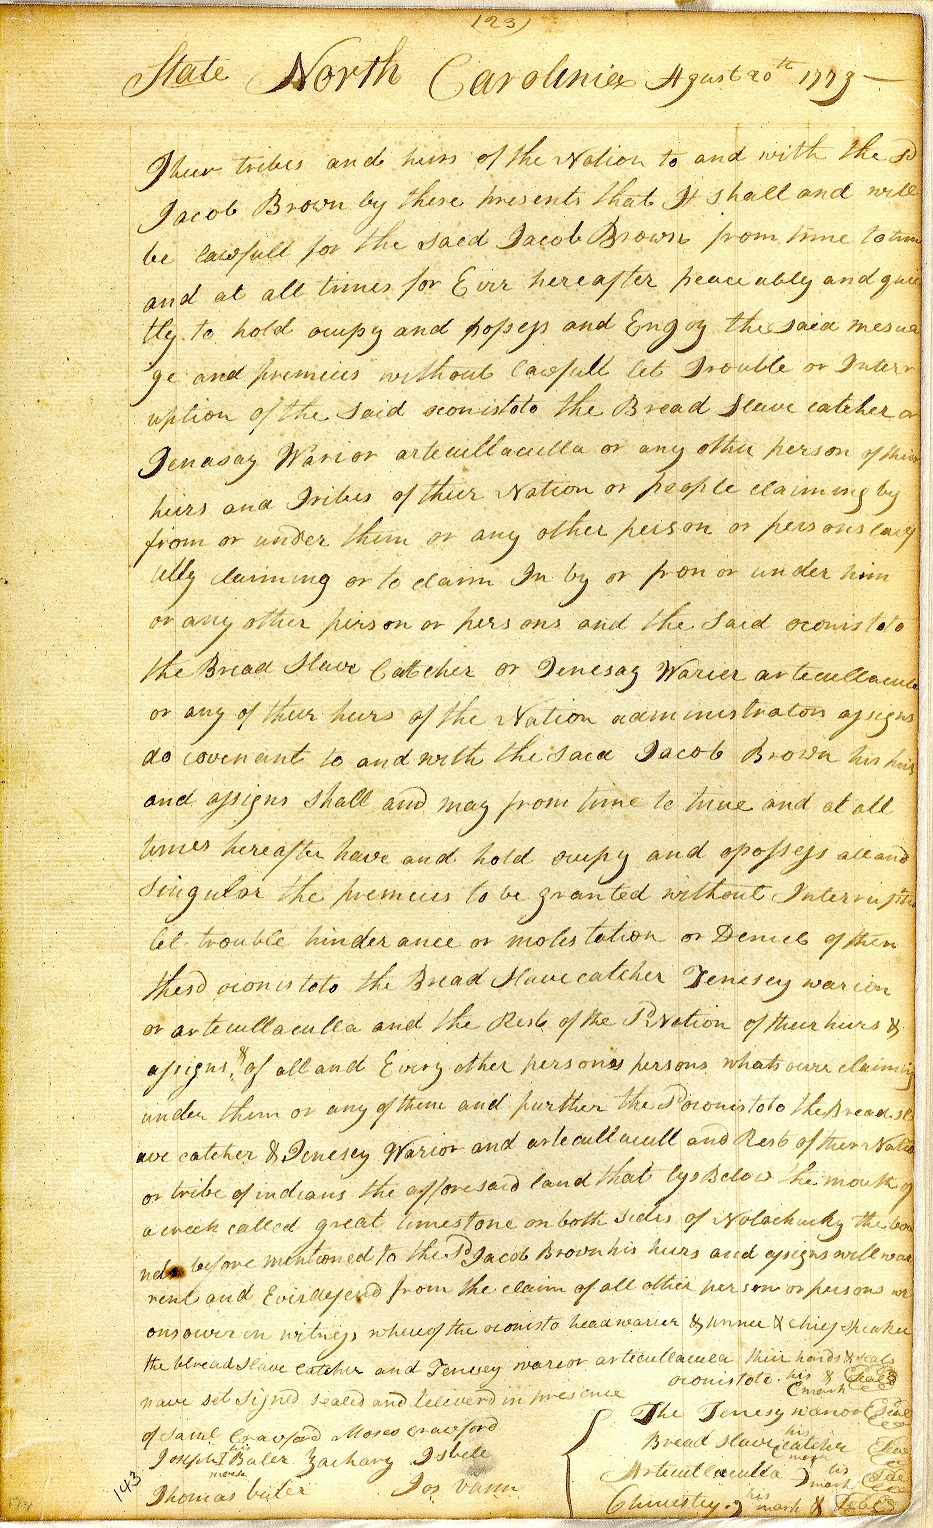 (23)
State North Carolinia Agust 20th 1779 —
Their tribes and heirs of the Nation to and with the sd
Jacob Brown by these presents that It shall and will
be lawfull for the said Jacob Brown from time to time
and at all times for Evir hereafter peaceably and quie
tly to hold ocupy and posess and Engoy the said mesua
ge and premices without lawfull let Trouble or Interr
uption of the said oconistoto the Bread Slave catcher or
Tenasay Warior artecullaculla or any other person of their
heirs and Tribes of their Nation or people claiming by
from or under them or any other person or persons lawf
ully claiming or to claim In by or from or under him
or any other person or persons and the said oconistoto
the Bread Slave Catcher or Tenesay Warier artecullaculla
or any of their heirs of the Nation administrators assigns
do covenant to and with the said Jacob Brown his heirs
and assigns shall and may from time to time and at all
times hereafter have and hold ocupy and opossess all and
singular the premices to be granted without Interruption
let trouble hinderance or molestation or Deniel of them
the sd oconistoto the Bread Slave catcher Tenesey warior
or artecullaculla and the Rest of the sd Nation of their heirs &
assigns & of all and Every other person or persons whatsoever claiming
under them or any of them and further the sd oconistoto the Bread sl
ave catcher & Tenesey Warior and artecullacull and Rest of their Nation
or tribe of indians the afforesaid land that lys Below the mouth of
a creek called great limestone on both sides of Nolachucky the bou
nds before mentioned to the sd Jacob Brown his heirs and assigns will war
rent and Evir defend from the claim of all other person or persons
in witness whereof the oconisto head warier & chief speaker
the bread slave catcher and Tenesey warior artecullaculla their hands & seals
have set signed sealed and delivered in presence
oconistoto his & mark Seal
of saml Crawford Moses Crawford
The Tenesy warior Seal
Joseph his mark Baler Zachary Isbell
Bread slave catcher his mark Seal
Artecullaculla his mark Seal
Thomas buler Jos Vann
Chinestey his mark & Seal
143